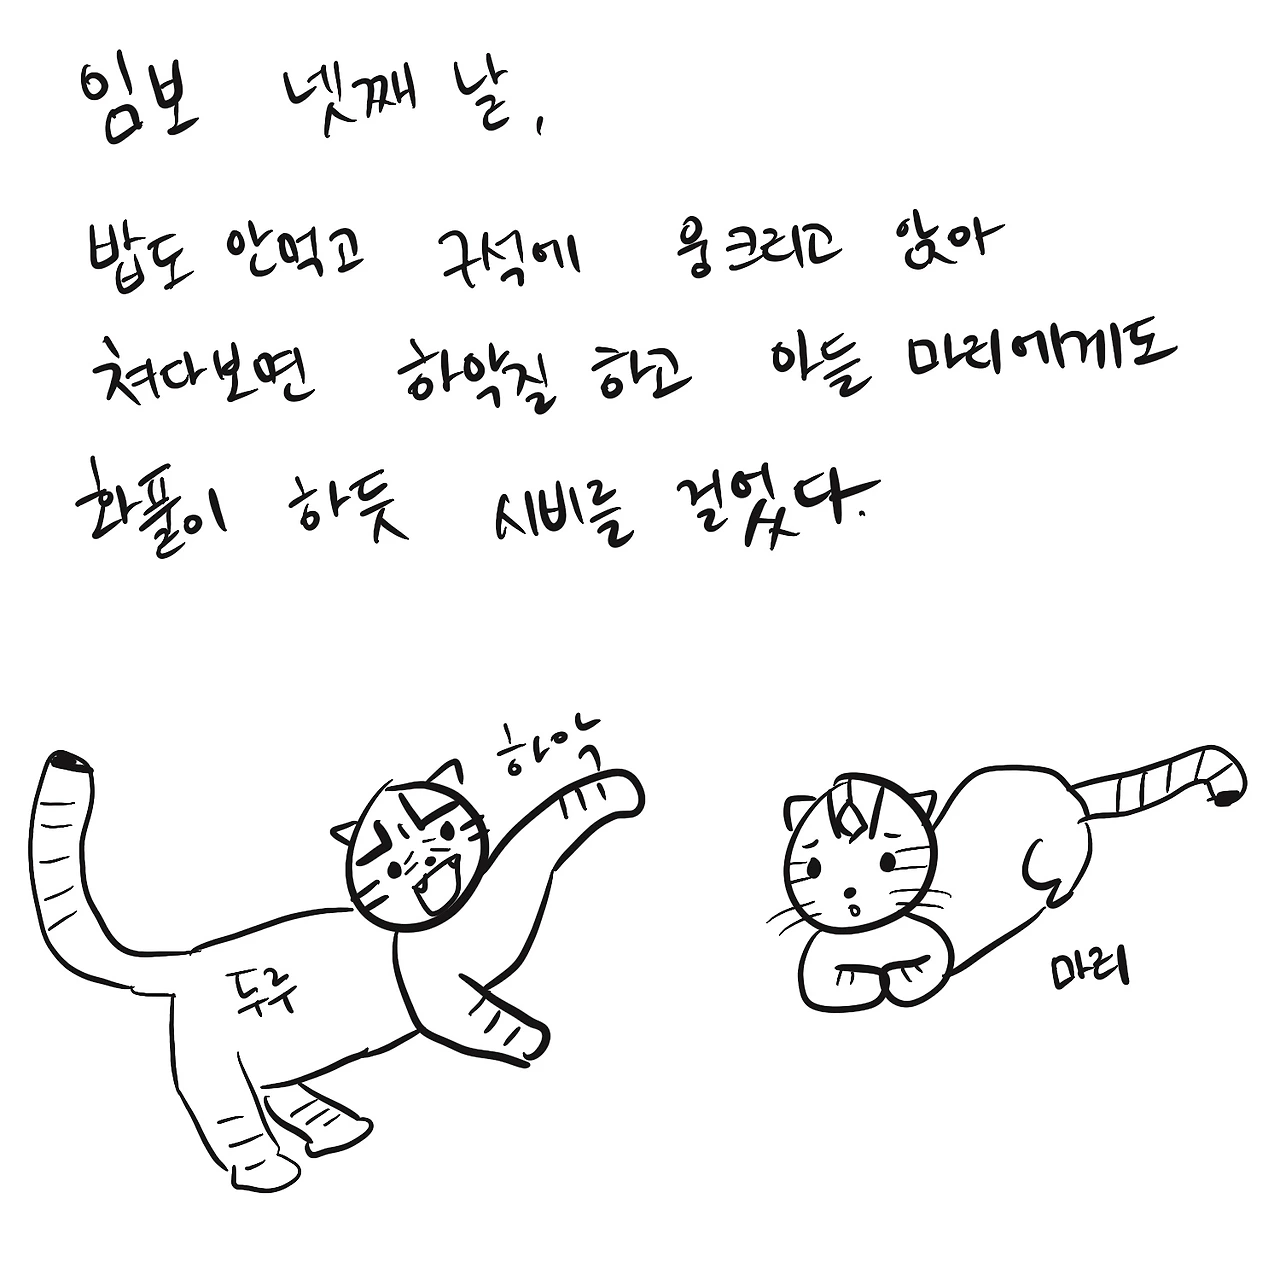 임보 넷째 날,
밥도 안먹고 구석에 웅크리고 앉아
쳐다보면 하악질 하고 아들 마리에게도
화풀이 하듯 시비를 걸었다.
하악
두루
마리